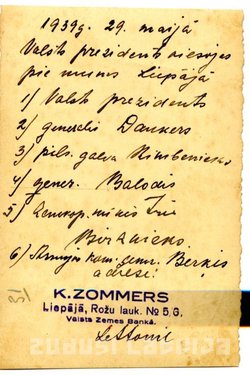 1939g. 29. maijā
Valsts prezidents viesojas
pie mums Liepājā
1) Valsts prezidents
2) generalis Dankers
3) pils. galva Rimbenieks
4) gener. Balodis
5) Zemkop. 
Birznieks.
6) Armijas kom. gener. Berķis
adrese:
K. ZOMMERS
Liepājā, Rožu lauk. № 5, G.
Valsts Zemes Bankā.